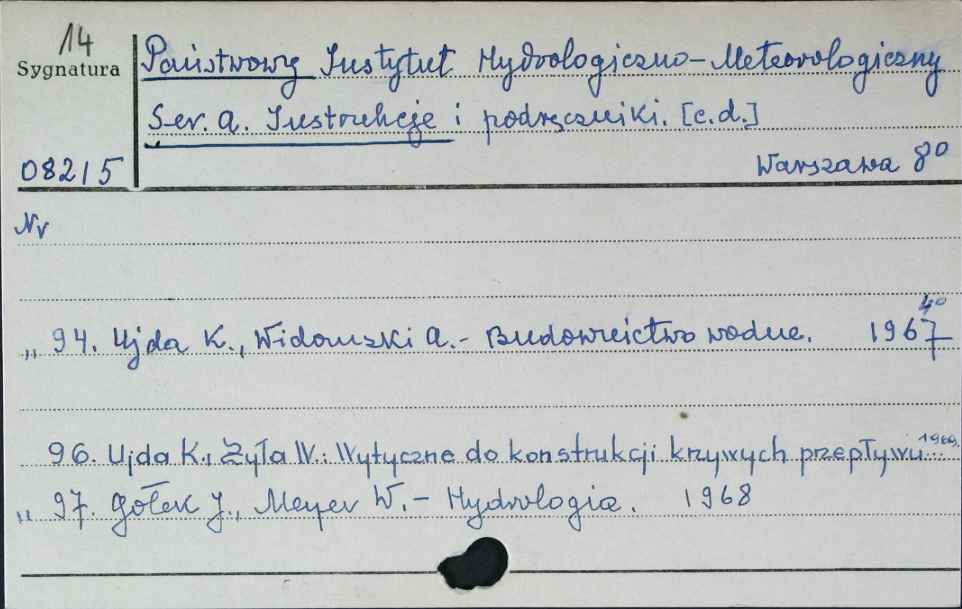 14
Sygnatura
08215
Państwowy Instytut Hydrologiczno-Meteorologiczny
Ser. A. Instrukcje i podręczniki. [c.d.]
Warszawa 8°
Nr
4°
„ 94. Ujda K., Widomski A.- Budownictwo wodne. 1967
96. Ujda K., Żyła W.: Wytyczne do konstrukcji krzywych przepływu... 1969.
„ 97. Gołek J., Meyer W. - Hydrologia. 1968